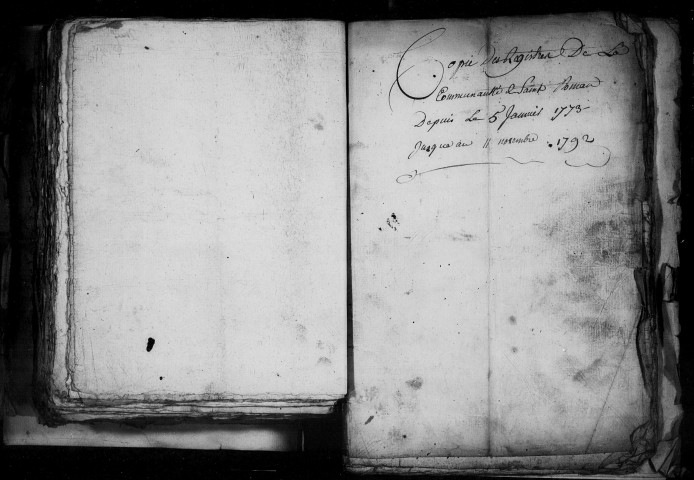 Copie des Registres De La
Communauté de Saint Roman
Depuis Le 5 Janvier 1773
Jusque au 11 novembre 1792